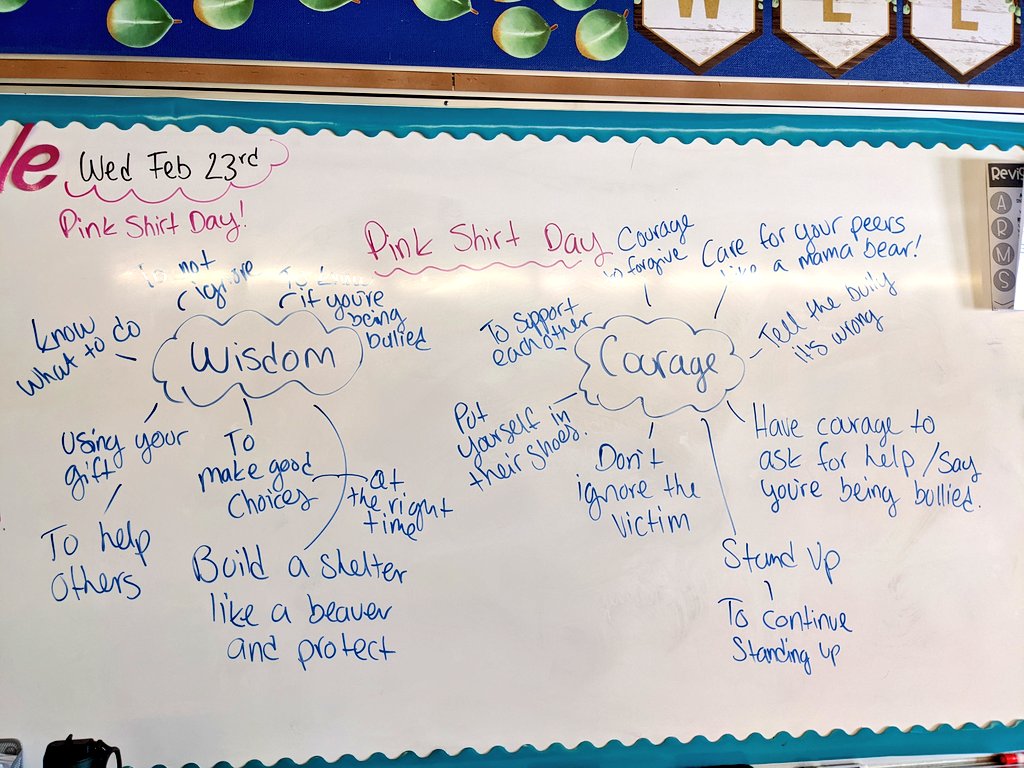 W E L
le Wed Feb 23rd
Pink Shirt Day!
Pink Shirt Day
Wisdom
not
ignore
To
if you're
being
bullied
Know
what to do
Using your
gift
To help
others
To
make good
choices
at
the right
time
Build a shelter
like a beaver
and protect
Courage
Courage
to forgive
Care for your peers
like a mama bear!
To support
each other
Tell the bully
it's wrong
Put
yourself in
their shoes.
Don't
ignore the
victim
Have courage to
ask for help/say
you're being bullied.
Stand Up
To continue
Standing up
Revis
A
R
M
S